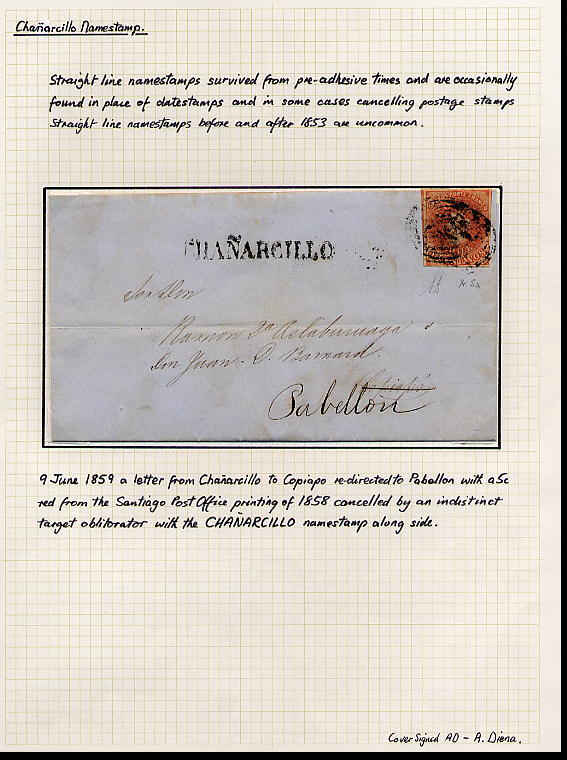 Chañarcillo Namestamp.
Straight line namestamps survived from pre-adhesive times and are occasionally
found in place of datestamps and in some cases cancelling postage stamps
Straight line namestamps before and after 1853 are uncommon.
CHAÑARCILLO
Ramon
Don Juan. D. Barnard.
Copiapó
Pabellon
9 June 1859 a letter from Chañarcillo to Copiapo re-directed to Pabellon with a 5c
red from the Santiago Post Office printing of 1858 cancelled by an indistinct
target obliterator with the CHAÑARCILLO namestamp along side.
Cover Signed AD - A. Diena.